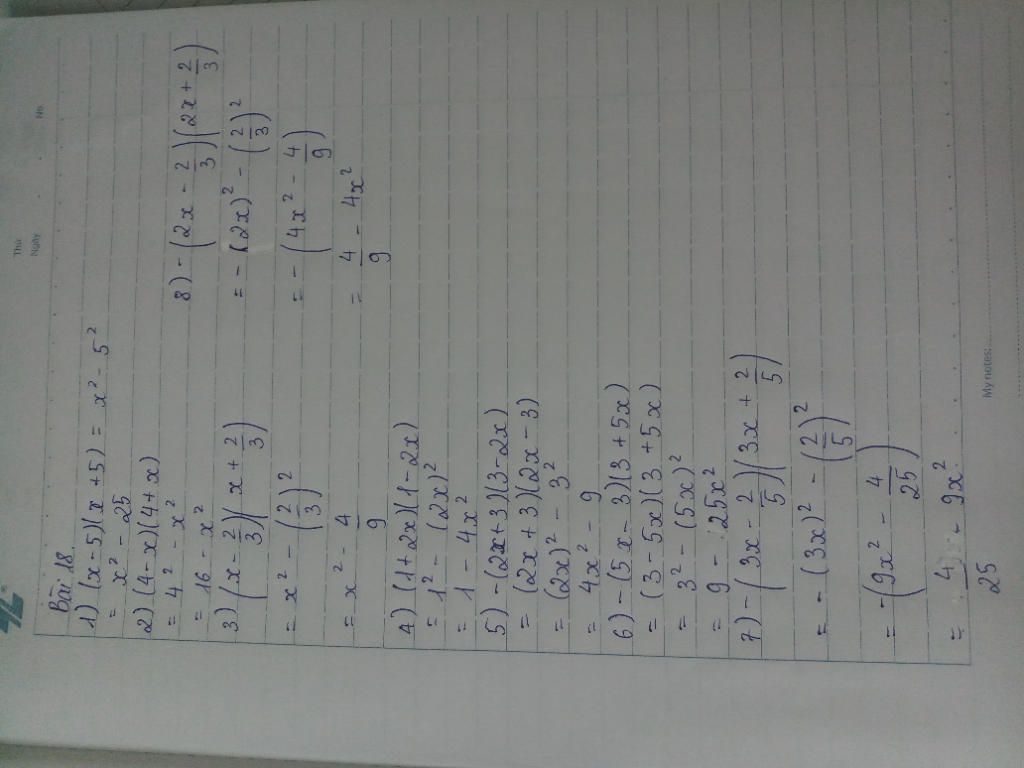 Thứ
Ngày
No.
Bài 18.
1) (x-5)(x+5) = x² - 5²
= x² - 25
2) (4-x)(4+x)
= 4² - x²
= 16 - x²
3) (x - 2/3)(x + 2/3)
= x² - (2/3)²
= x² - 4/9
4) (1+2x)(1-2x)
= 1² - (2x)²
= 1 - 4x²
5) -(2x+3)(3-2x)
= (2x+3)(2x-3)
= (2x)² - 3²
= 4x² - 9
6) -(5x-3)(3+5x)
= (3-5x)(3+5x)
= 3² - (5x)²
= 9 - 25x²
7) -(3x - 2/5)(3x + 2/5)
= -(3x)² - (2/5)²
= -(9x² - 4/25)
= 4/25 - 9x²
8) -(2x - 2/3)(2x + 2/3)
= -(2x)² - (2/3)²
= -(4x² - 4/9)
= 4/9 - 4x²
My notes: